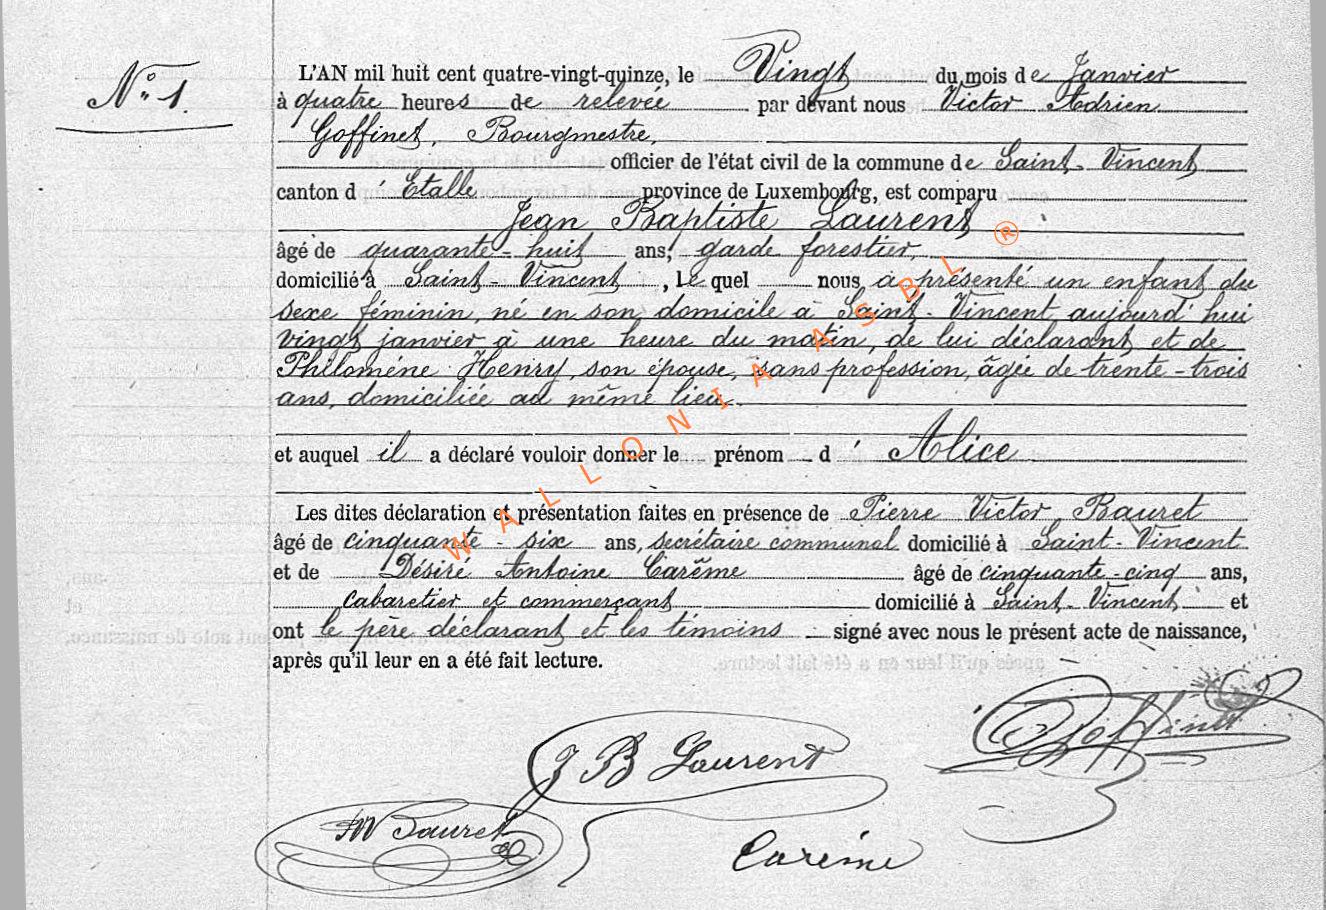 N° 1.
L'AN mil huit cent quatre-vingt-quinze, le Vingt du mois de Janvier
à quatre heures de relevée par devant nous Victor Adrien
Goffinet, Bourgmestre,
officier de l'état civil de la commune de Saint-Vincent
canton d'Etalle province de Luxembourg, est comparu
Jean Baptiste Laurent
âgé de quarante-huit ans, garde forestier,
domicilié à Saint-Vincent, Lequel nous a présenté un enfant du
sexe féminin, né en son domicile à Saint-Vincent aujourd'hui
vingt janvier à une heure du matin, de lui déclarant et de
Philomène Henry, son épouse, sans profession, âgée de trente-trois
ans, domiciliée au même lieu.
et auquel il a déclaré vouloir donner le prénom d'Alice
Les dites déclaration et présentation faites en présence de Pierre Victor Bauret
âgé de cinquante-six ans, secrétaire communal domicilié à Saint-Vincent
et de Désiré Antoine Carême âgé de cinquante-cinq ans,
cabaretier et commerçant domicilié à Saint-Vincent et
ont le père déclarant et les témoins signé avec nous le présent acte de naissance,
après qu'il leur en a été fait lecture.
Goffinet
J B Laurent
Bauret
Carême
WALLONIA ASBL ®